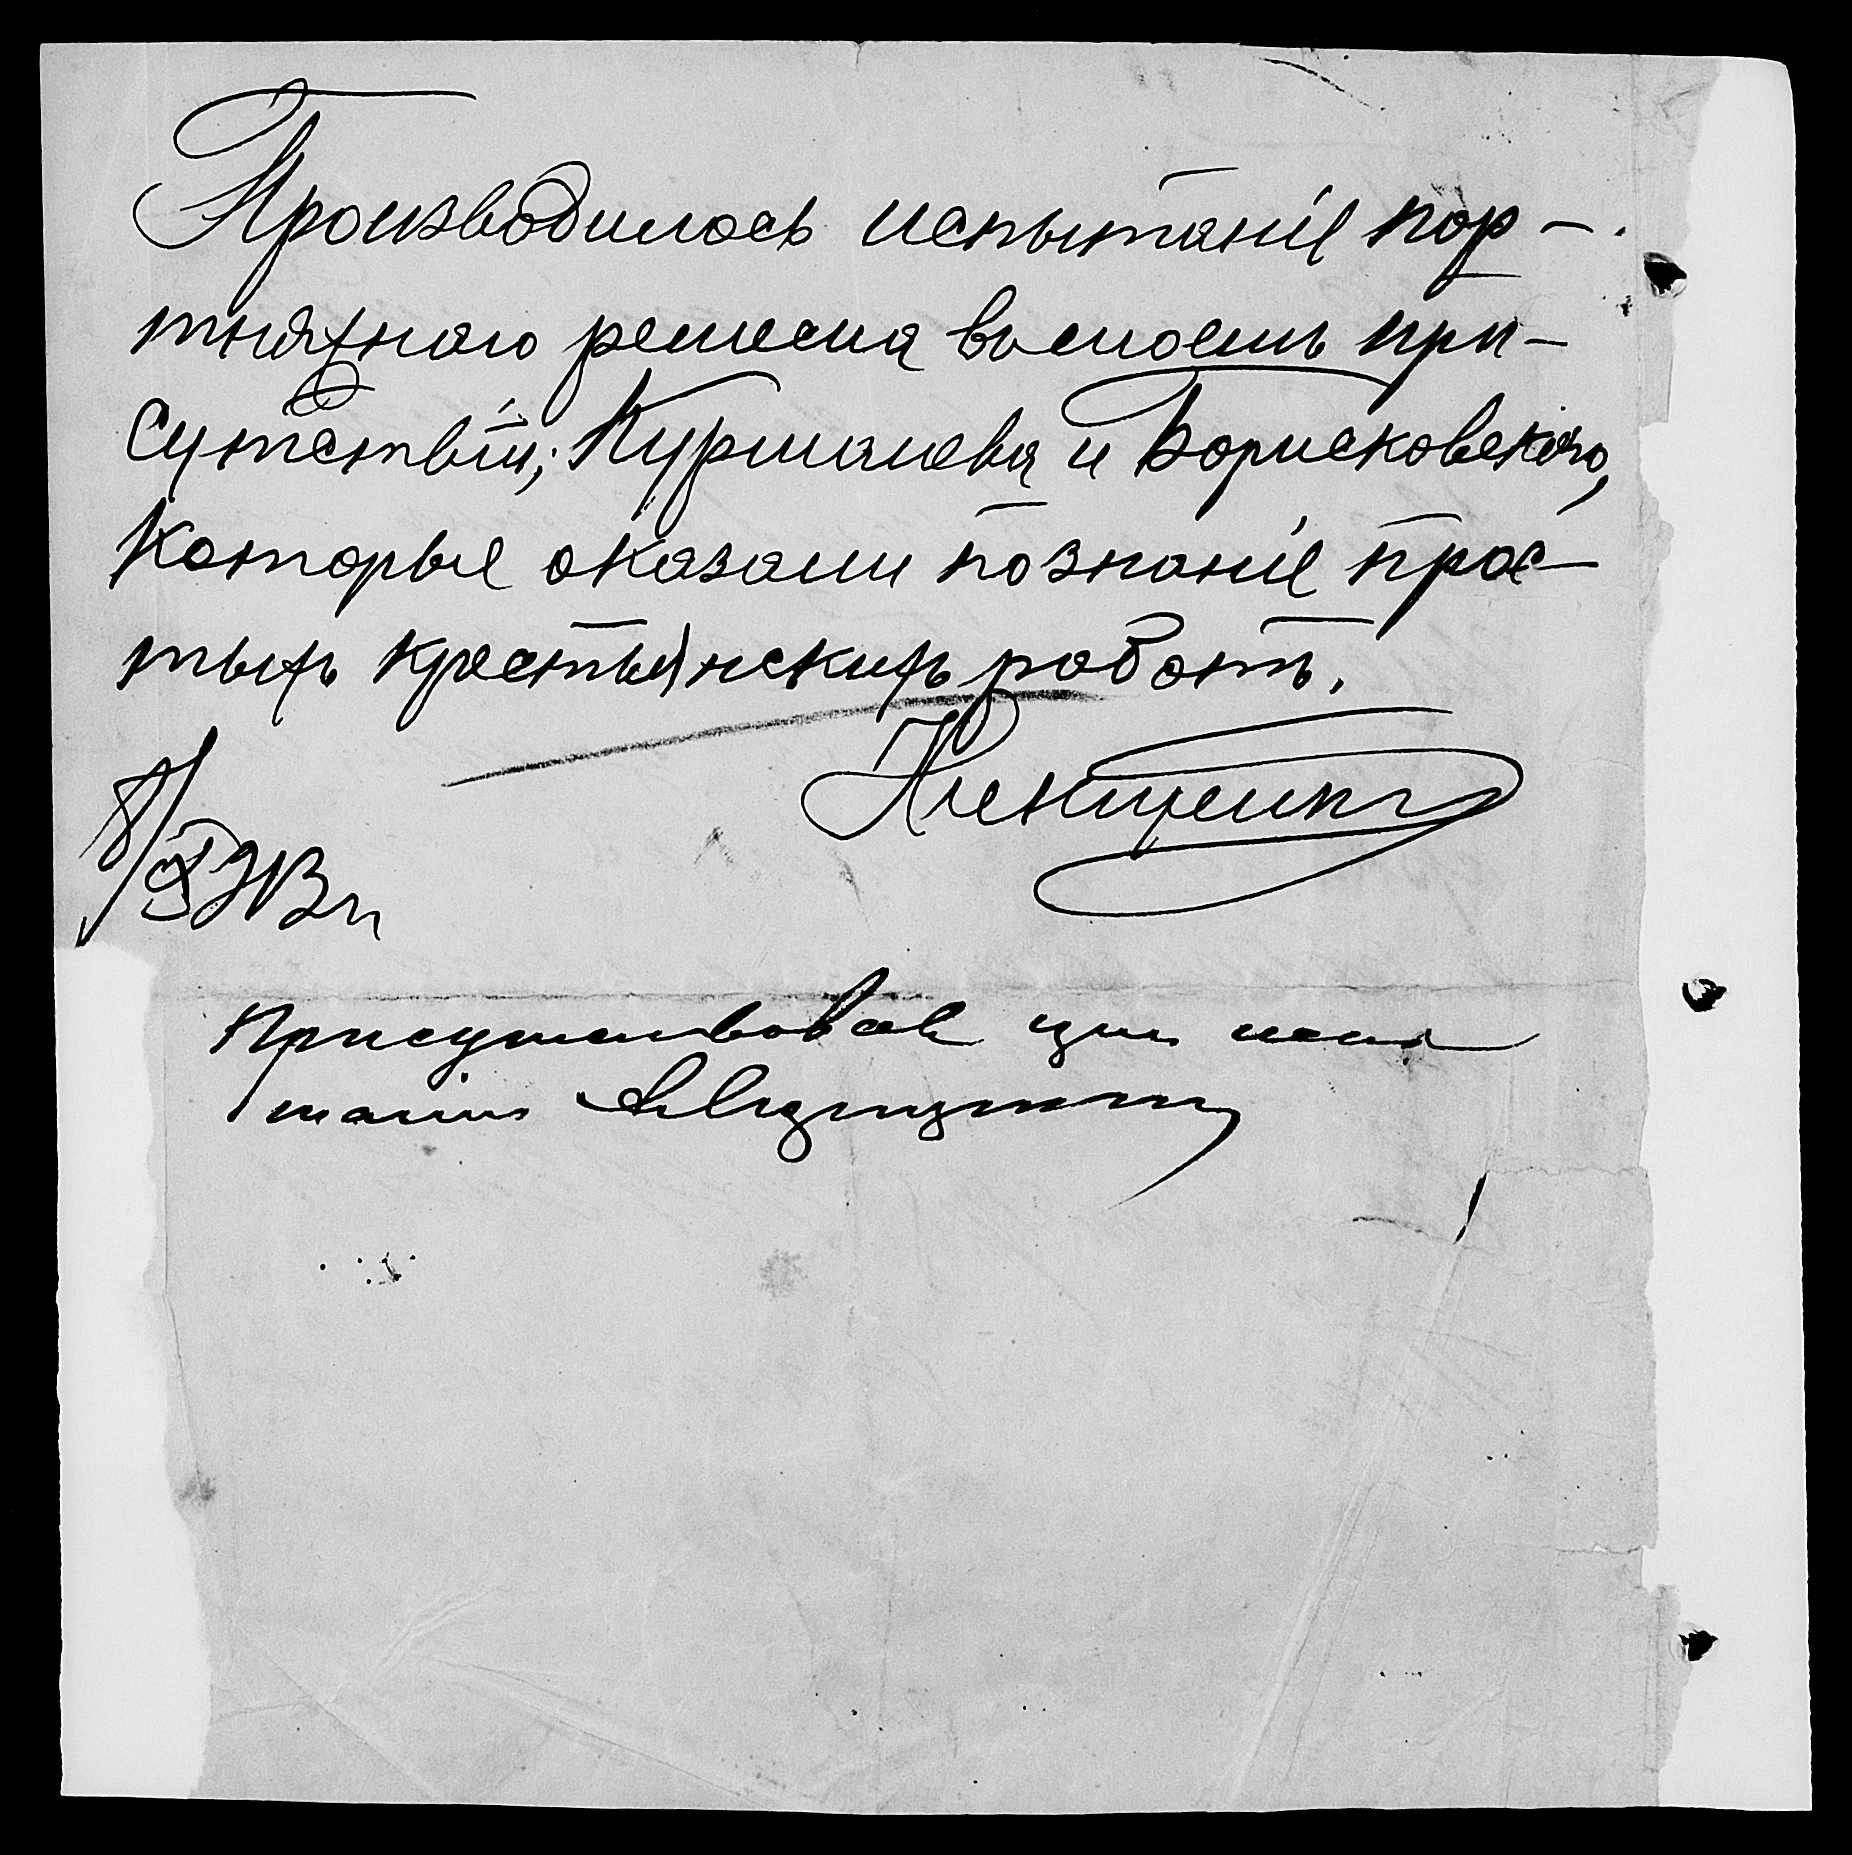 Производилось испытаніе пор-
тняжнаго ремесла въ моемъ при-
сутствіи; Курмалева и Борисковскаго,
Которые оказали познаніе прос-
тыхъ крестьянскихъ работъ.
Клеющенко
8/X 913 г.
Присутствовалъ при испы
таніи